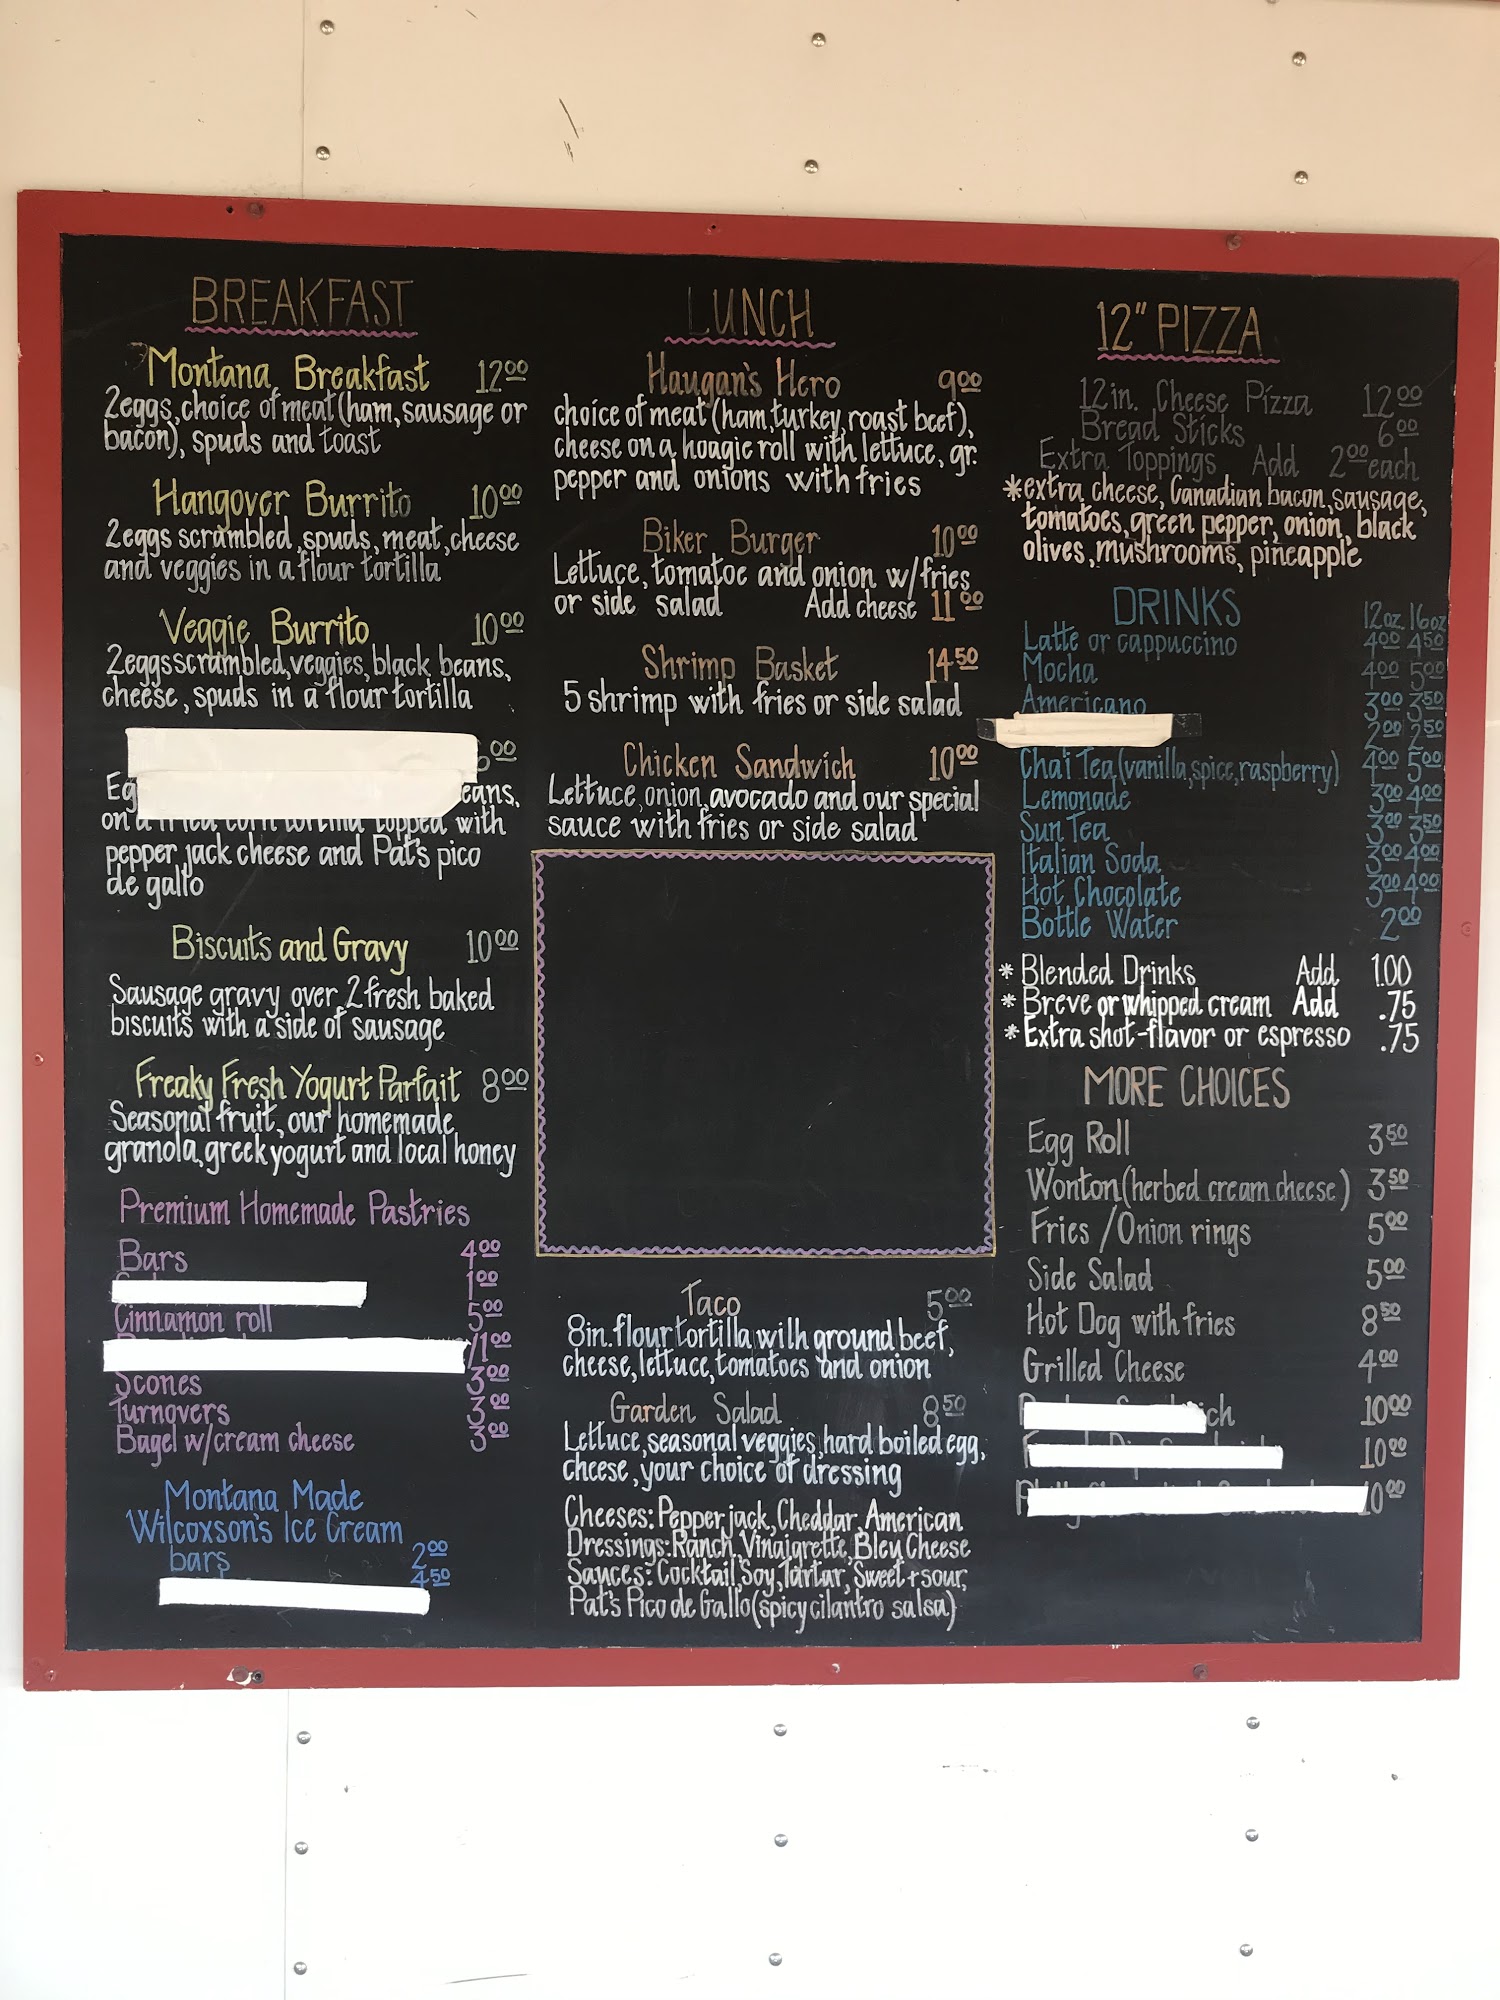 BREAKFAST
Montana Breakfast 12.00
2eggs, choice of meat (ham, sausage or
bacon), spuds and toast
Hangover Burrito 10.00
2eggs scrambled, spuds, meat, cheese
and veggies in a flour tortilla
Veggie Burrito 10.00
2eggs scrambled, veggies, black beans,
cheese, spuds in a flour tortilla
topped with
pepper jack cheese and Pat's pico
de gallo
Biscuits and Gravy 10.00
Sausage gravy over 2 fresh baked
biscuits with a side of sausage
Freaky Fresh Yogurt Parfait 8.00
Seasonal fruit, our homemade
granola, greek yogurt and local honey
Premium Homemade Pastries
Bars 4.00
1.00
Cinnamon roll 5.00
/1.00
Scones 3.00
Turnovers 3.00
Bagel w/cream cheese 3.00
Montana Made
Wilcoxson's Ice Cream
bars 2.00
4.50
LUNCH
Haugan's Hero 9.00
choice of meat (ham, turkey, roast beef),
cheese on a hoagie roll with lettuce, gr.
pepper and onions with fries
Biker Burger 10.00
Lettuce, tomatoe and onion w/fries
or side salad Add cheese 11.00
Shrimp Basket 14.50
5 shrimp with fries or side salad
Chicken Sandwich 10.00
Lettuce, onion, avocado and our special
sauce with fries or side salad
Taco 5.00
8in. flour tortilla with ground beef,
cheese, lettuce, tomatoes and onion
Garden Salad 8.50
Lettuce, seasonal veggies, hard boiled egg,
cheese, your choice of dressing
Cheeses: Pepper jack, Cheddar, American
Dressings: Ranch, Vinaigrette, Bleu Cheese
Sauces: Cocktail, Soy, Tartar, Sweet + sour,
Pat's Pico de Gallo (spicy cilantro salsa)
12" PIZZA
12in. Cheese Pizza 12.00
Bread Sticks 6.00
Extra Toppings Add 2.00 each
*extra cheese, Canadian bacon, sausage,
tomatoes, green pepper, onion, black
olives, mushrooms, pineapple
DRINKS 12oz. 16oz
Latte or cappuccino 4.00 4.50
Mocha 4.00 5.00
Americano 3.00 3.50
2.00 2.50
Chai Tea (vanilla, spice, raspberry) 4.00 5.00
Lemonade 3.00 4.00
Sun Tea 3.00 3.50
Italian Soda 3.00 4.00
Hot Chocolate 3.00 4.00
Bottle Water 2.00
* Blended Drinks Add 1.00
* Breve or whipped cream Add .75
* Extra shot-flavor or espresso .75
MORE CHOICES
Egg Roll 3.50
Wonton (herbed cream cheese) 3.50
Fries / Onion rings 5.00
Side Salad 5.00
Hot Dog with fries 8.50
Grilled Cheese 4.00
10.00
10.00